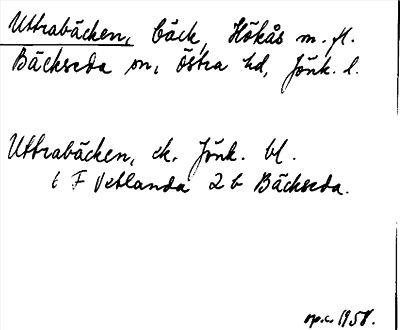 Uttrabäcken, bäck, Hökås m.fl.
Bäckseda sn, Östra hd, Jönk. l.
Uttrabäcken, ek. Jönk. bl.
6 F Vetlanda 2 b Bäckseda.
op.c. 1958.